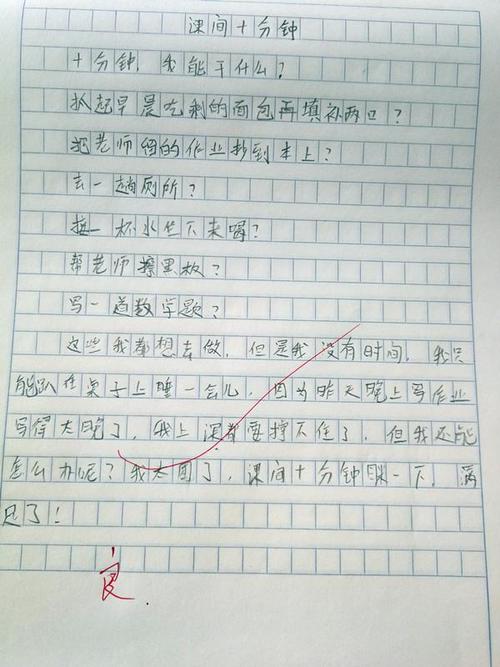 课间十分钟
十分钟，我能干什么？
抓起早晨吃剩的面包再填补两口？
把老师留的作业抄到本上？
去一趟厕所？
接一杯水坐下来喝？
帮老师擦黑板？
写一道数学题？
这些我都想去做，但是我没有时间，我只
能趴在桌子上睡一会儿，因为昨天晚上写作业
写得太晚了，我上课都要撑不住了，但我还能
怎么办呢？我太困了，课间十分钟眯一下，满
足了！
良